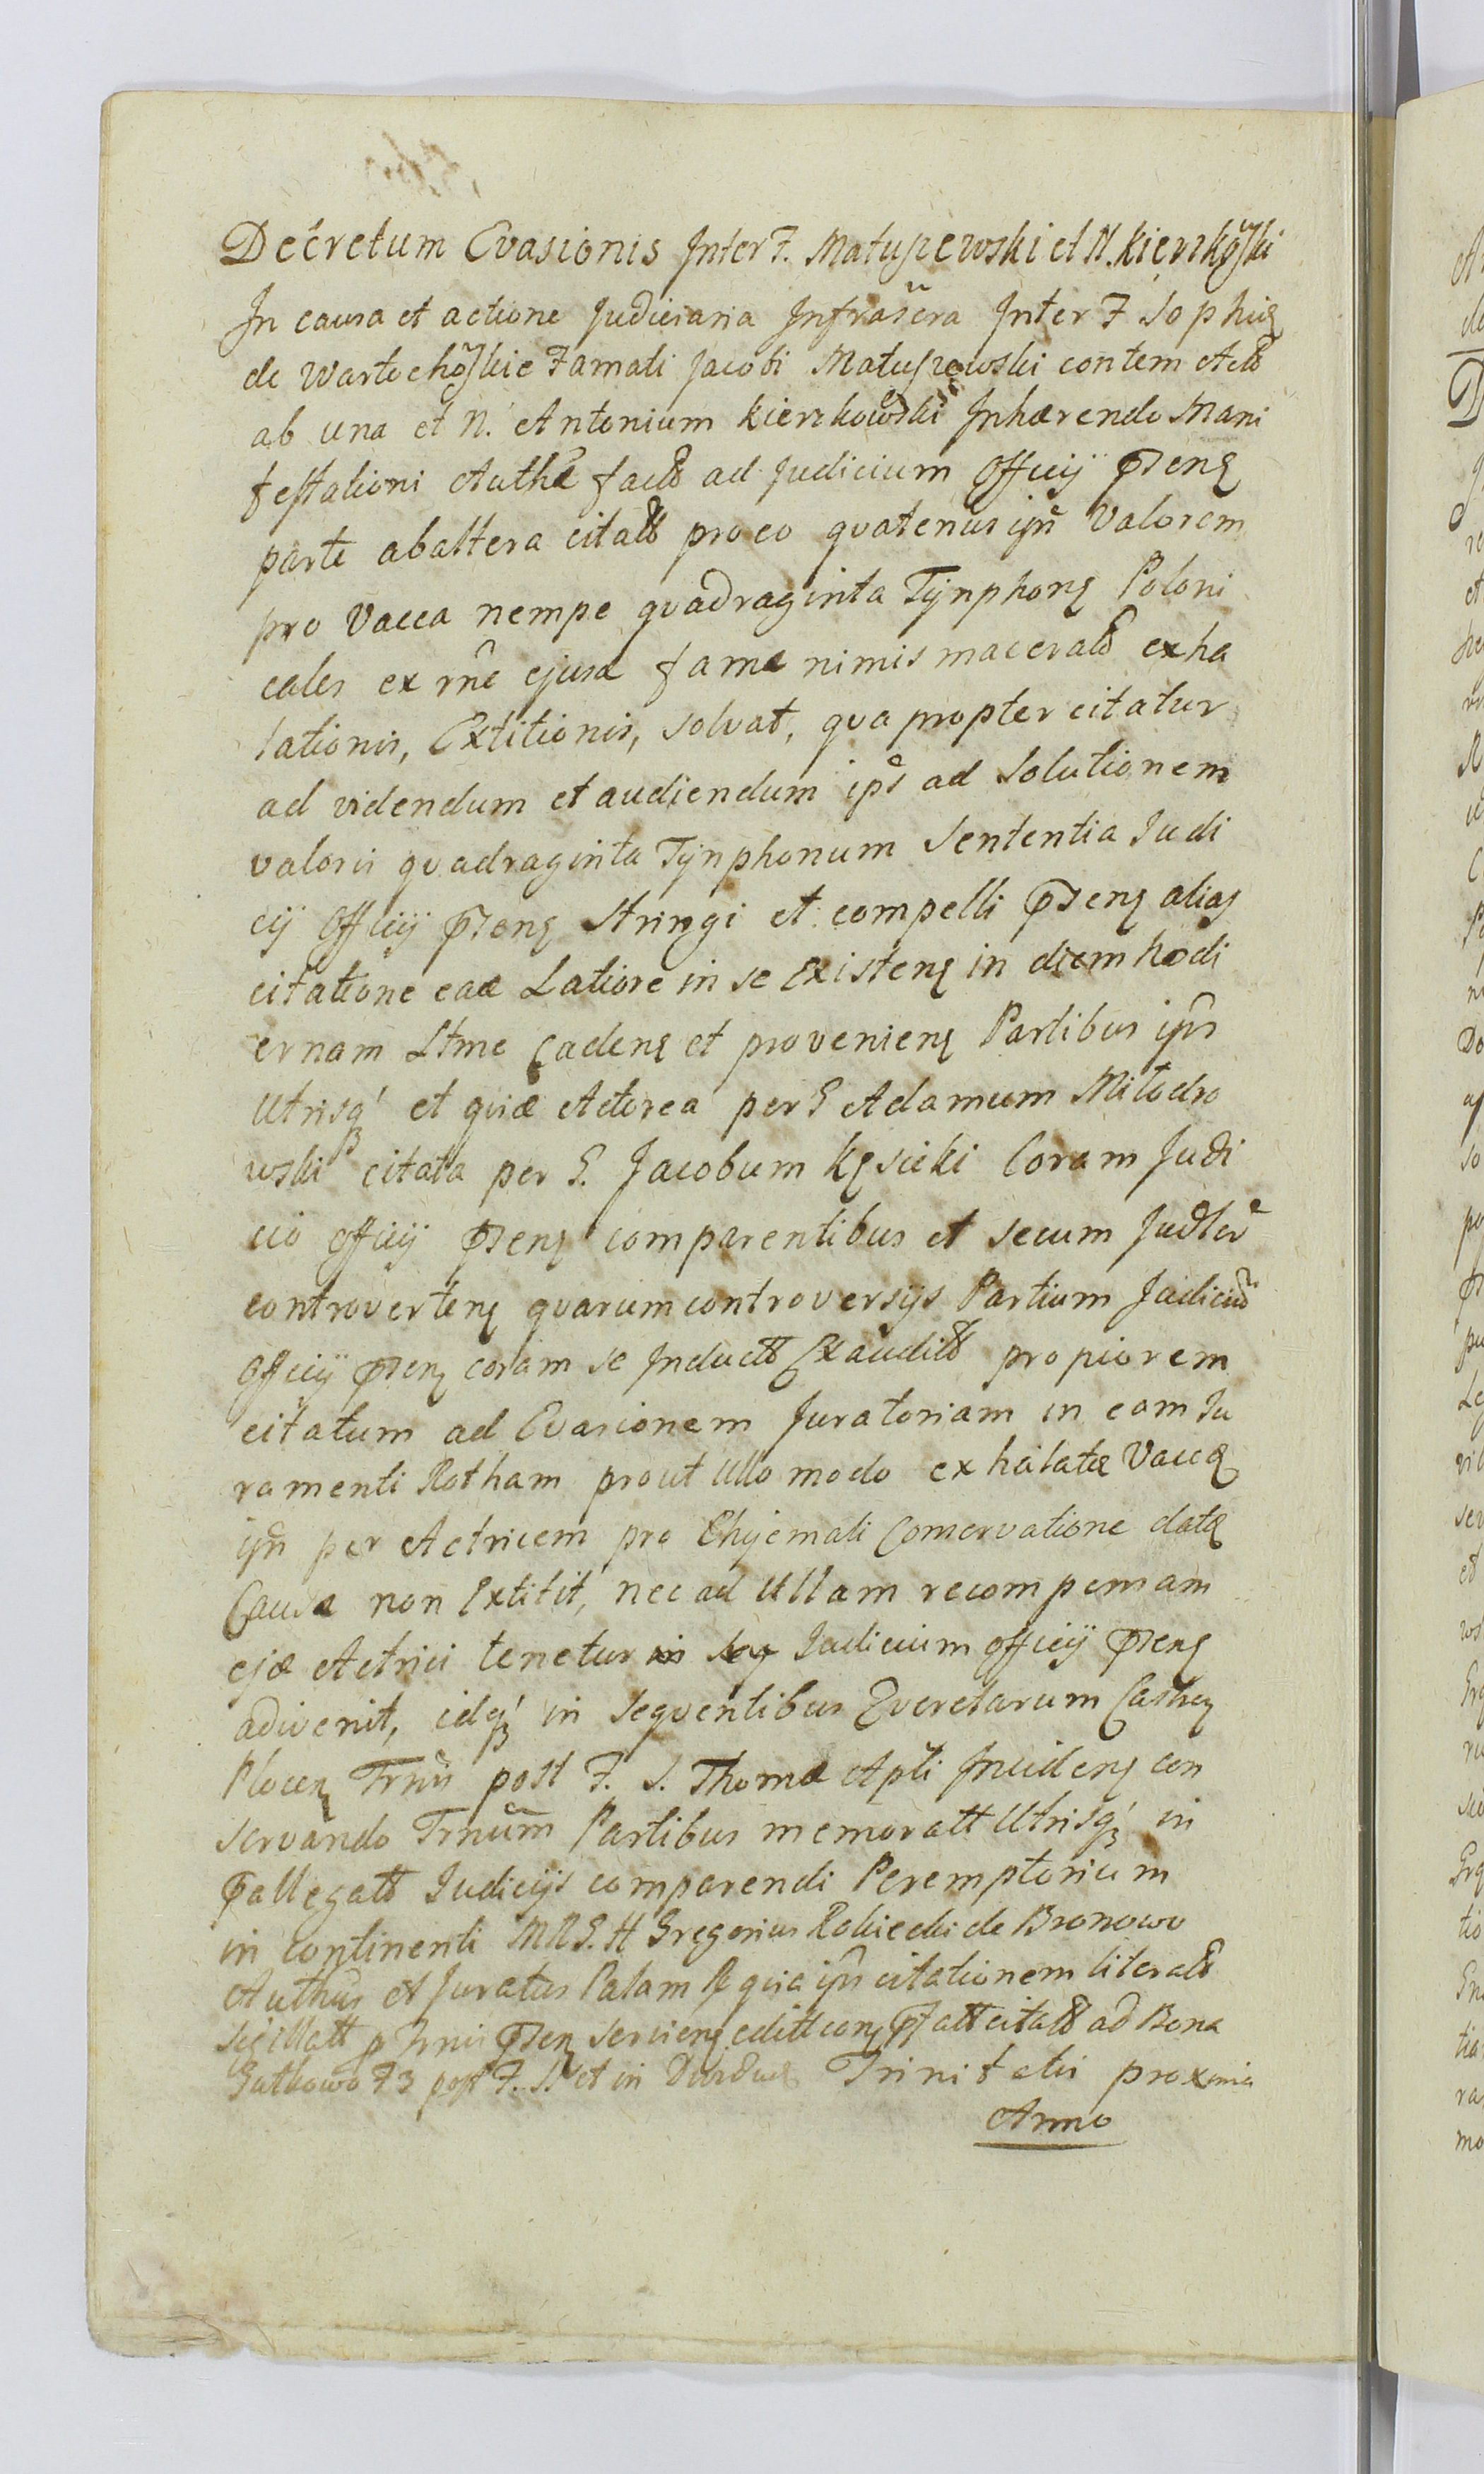 Decretum Evasionis Inter F. Matuszewski et N. Kierzkõski
In causa et actione Judiciaria Infrascra Inter F Sophią
de Wartochõskie Famati Jacobi Matuszewski contem Actõ
ab una et N. Antonium Kierzkowski Inhærendo Mani
festationi Authæ factõ ad Judicium Officij Pñseng
parte ab altera citatõ pro eo quatenus ipñ Valorem
pro Vacca nempe quadraginta Tynphonę Poloni
cales ex rñe ejusd fame nimis maceratõ exha
lationis, Extitionis, solvat, qua propter citatur
ad videndum et audiendum ips ad Solutionem
valoris quadraginta Tynphonum Sententia Judi
cij Officij Pñseng Stringi et compelli Pñseng alias
citatione eað Latiore in se Existeng in diem hodi
ernam Ltme Cadeng et provenieng Partibus ipñs
Utrisq' et quid Actorea per G Adamum Milodro
wski citata per G. Jacobum Kęsicki Coram Judi
cio officij Pñseng comparentibus et secum Judler
controverteng quarum controversijs Partium Judiciũ
Officij Pñseng coram se Inductõ Exauditõ propiorem
citatum ad Evasionem Juratoriam in eam Ju
ramenti Rotham prout Ullo modo exhalatæ Vaccę
ipñ per Actricem pro Chyemali Conservatione datę
Causa non Extitit, nec ad Ullam recompensam
ejð Actrici tenetur Judicium officij Pñseng
adivenit, idq' in sequentibus Querelarum Castreng
Ploceng Trñis post F. S. Thomæ Apli Incideng con
servando Trnũm Partibus memoratt Utrisq' in
Pallegatõ Judicijs comparendi Peremptorium
in continenti MRG. H Gregorius Rokicki de Bronowo
Authũs et Juratus Palam R quia ipñs citationem literatõ
sigillatt p Trñi Pñseng servieng editt Pfatt citatõ ad Bona
Gutkowo F3 post F. S. et in Trinitatis proxima
Anno